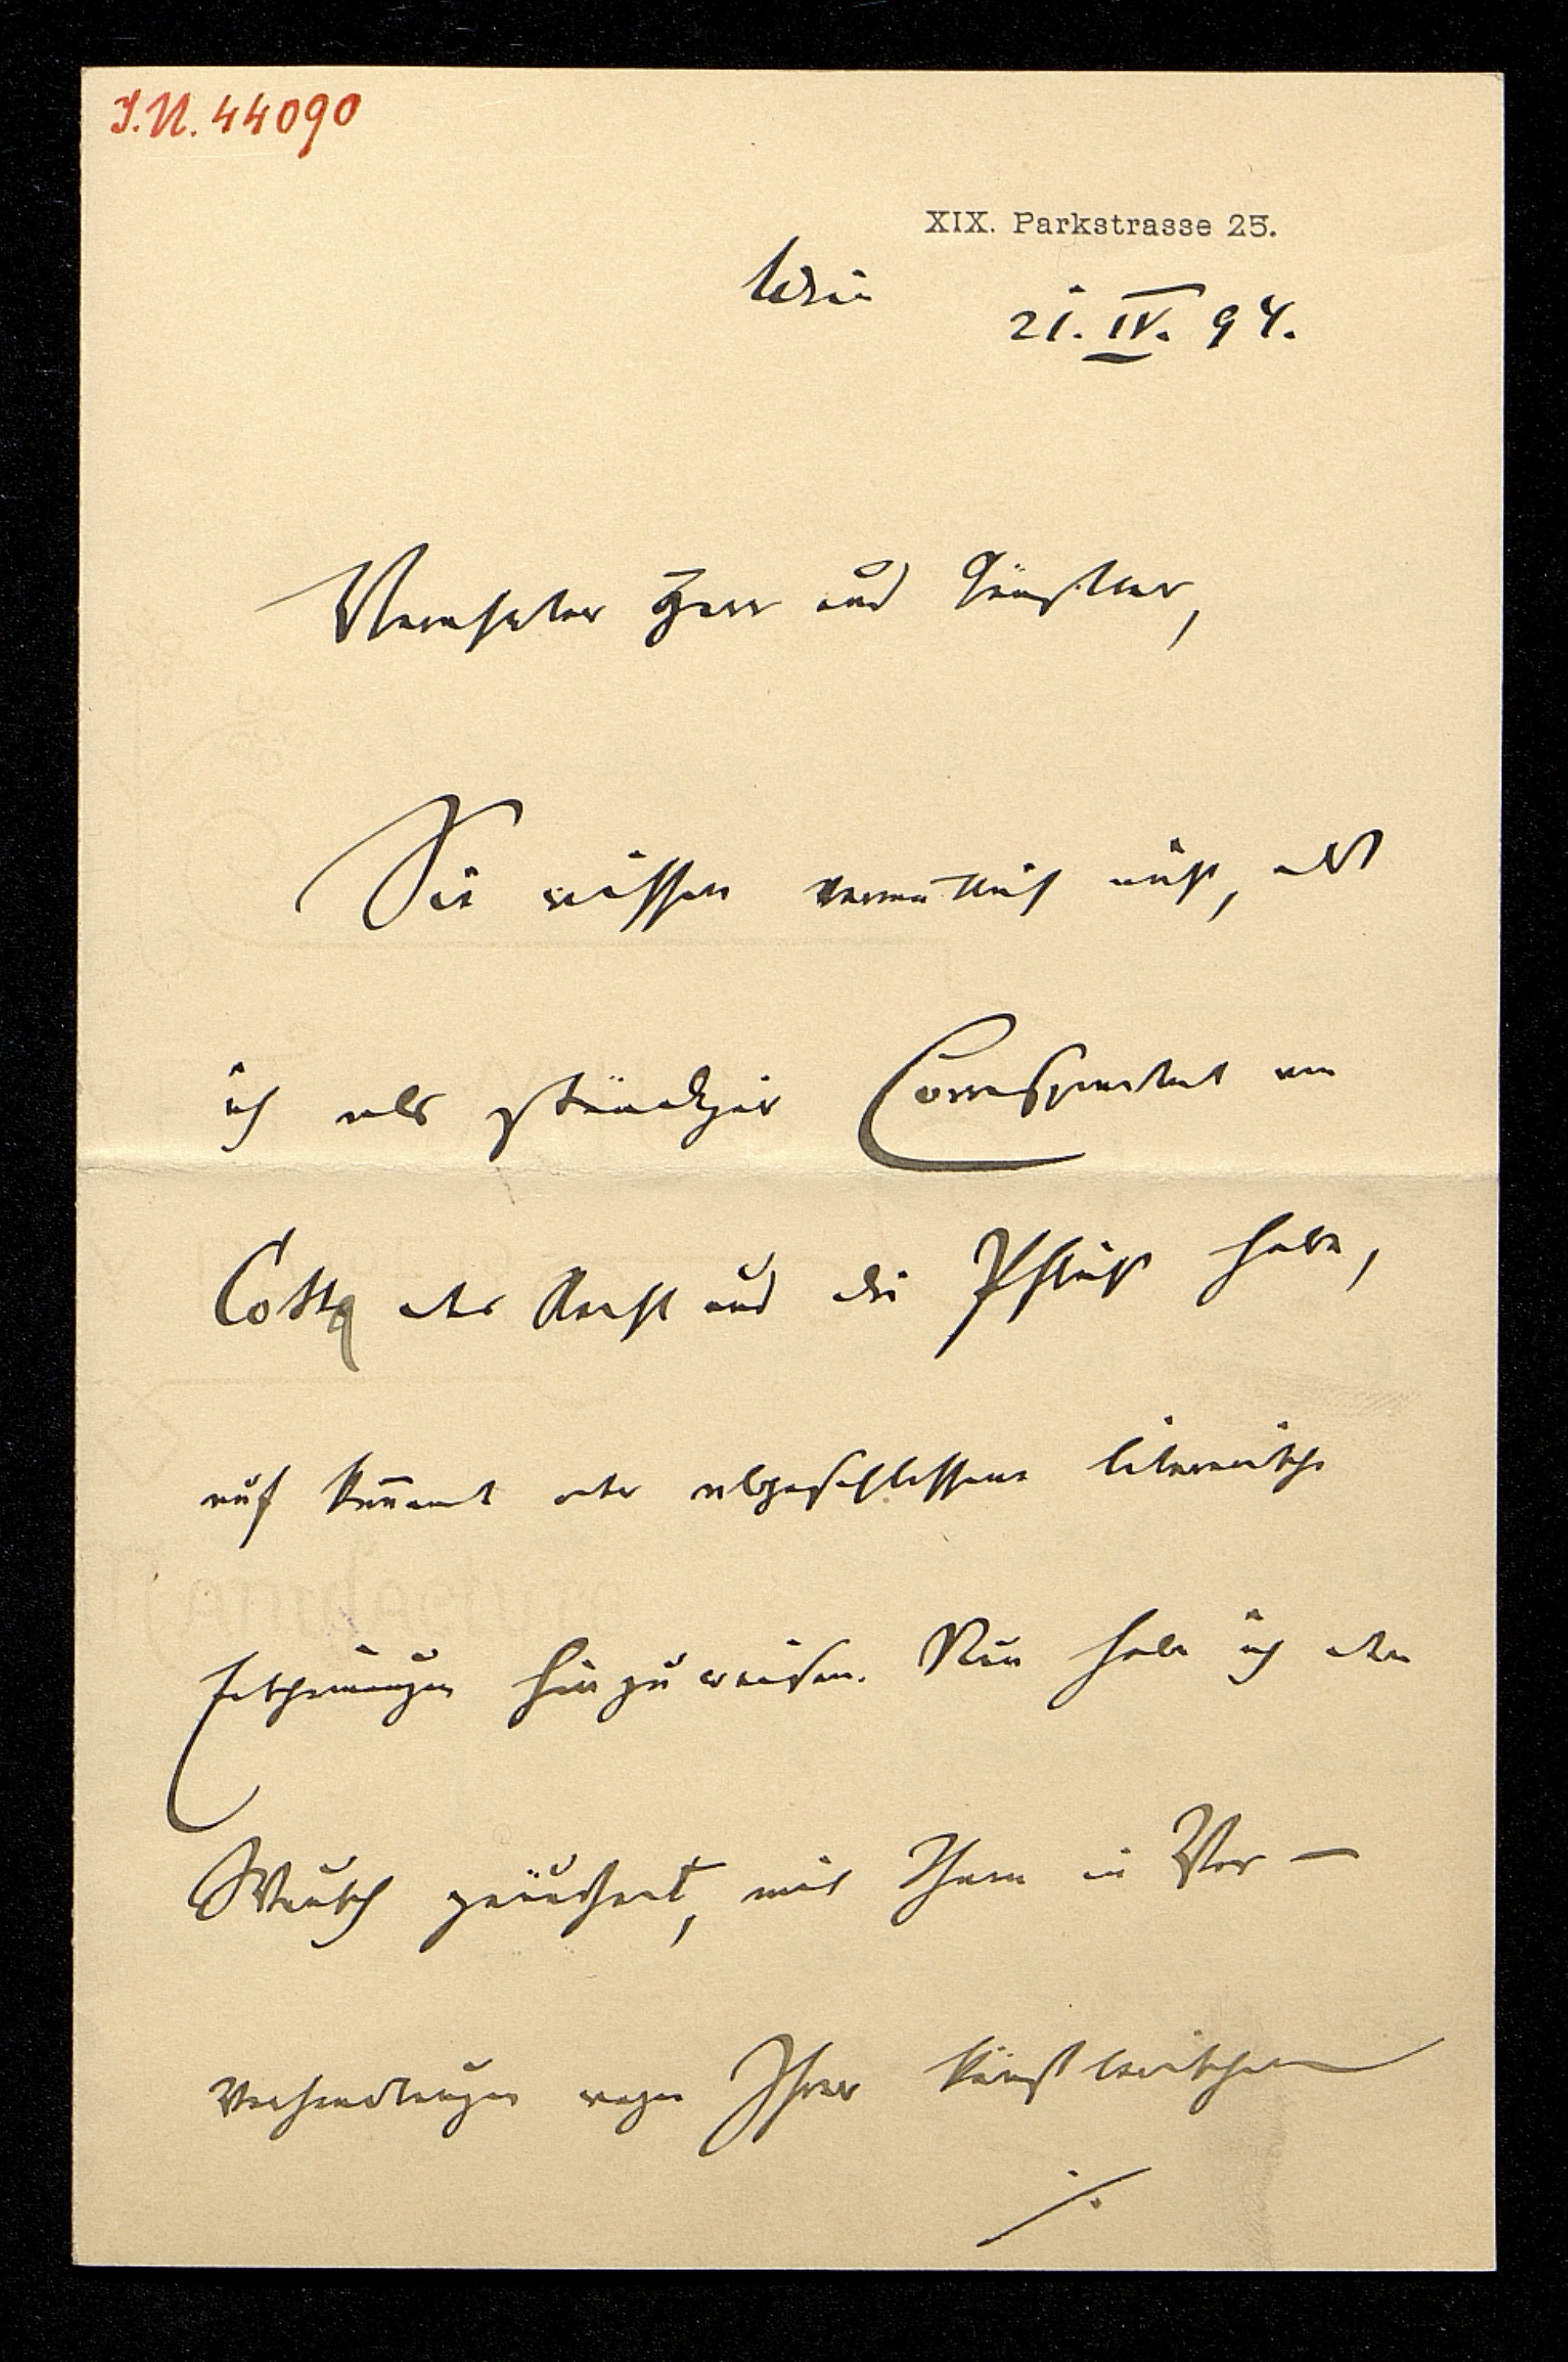 I.N. 44090
XIX. Parkstrasse 25.
Wien
21. IV. 94.
Verehrter Herr und Künstler,
Sie wissen vermutlich nicht, daß
ich als ständiger Correspondent von
Cotta das Recht und die Pflicht habe,
auf kommende oder abgeschlossene literarische
Erscheinungen hinzuweisen. Nun habe ich den
Wunsch geäußert, mit Ihnen in Ver-
Verhandlungen wegen Ihrer künstlerischen
./.